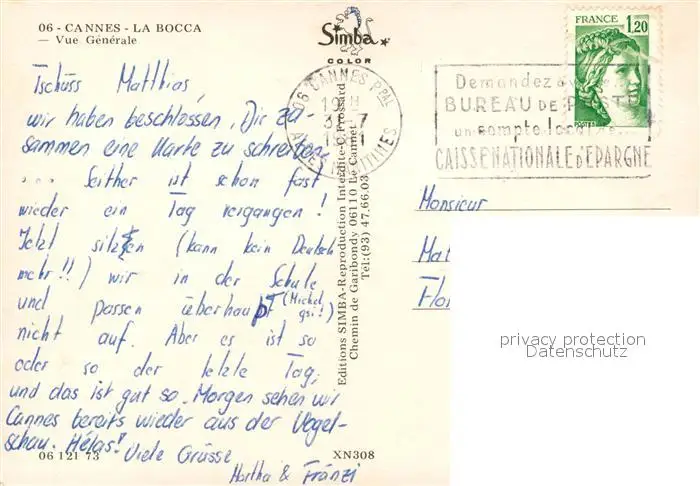 06 - CANNES - LA BOCCA
— Vue Générale
Simba
COLOR
FRANCE 1,20
06 CANNES PPAL
18 H
3 - 7
ALPES MARITIMES
Demandez
BUREAU DE POSTE
un compte
CAISSE NATIONALE D'EPARGNE
Tschüss Matthias,
wir haben beschlossen, Dir zu-
sammen eine Karte zu schreiben
... Seither ist schon fast
wieder ein Tag vergangen!
Jetzt sitzen (kann kein Deutsch
mehr!!) wir in der Schule
und passen überhaupt (Michel
gsi!)
nicht auf. Aber es ist so
oder so der letzte Tag,
und das ist gut so. Morgen sehen wir
Cannes bereits wieder aus der Vogel-
schau. Hélas!
Viele Grüsse
Martha & Fränzi
Editions SIMBA-Reproduction Interdite-C. Frossard
Chemin de Garibondy 06110 Le Cannet
Tél:(93) 47.66.03
Monsieur
Mat
Flor
privacy protection
Datenschutz
06 121 73
XN308